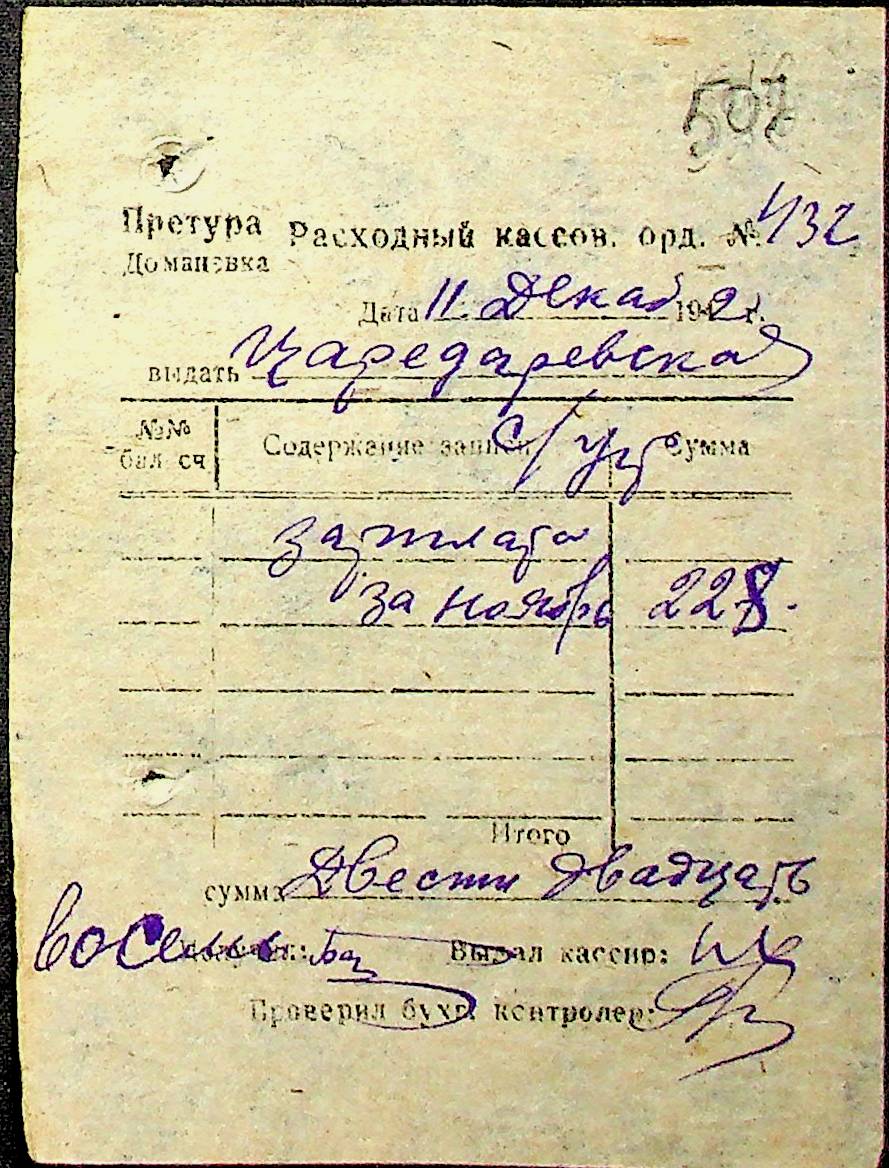 507
Претура Расходный кассов. орд. № 432
Домановка
Дата 11 Декаб 1942 г.
выдать Цареградевская
№№ бал сч Содержание записи с/ Сумма
зарплата
за ноябрь 228.
Итого
сумма Двести двадцать
восемь Получил: Выдал кассир:
Проверил бухг. контролер: